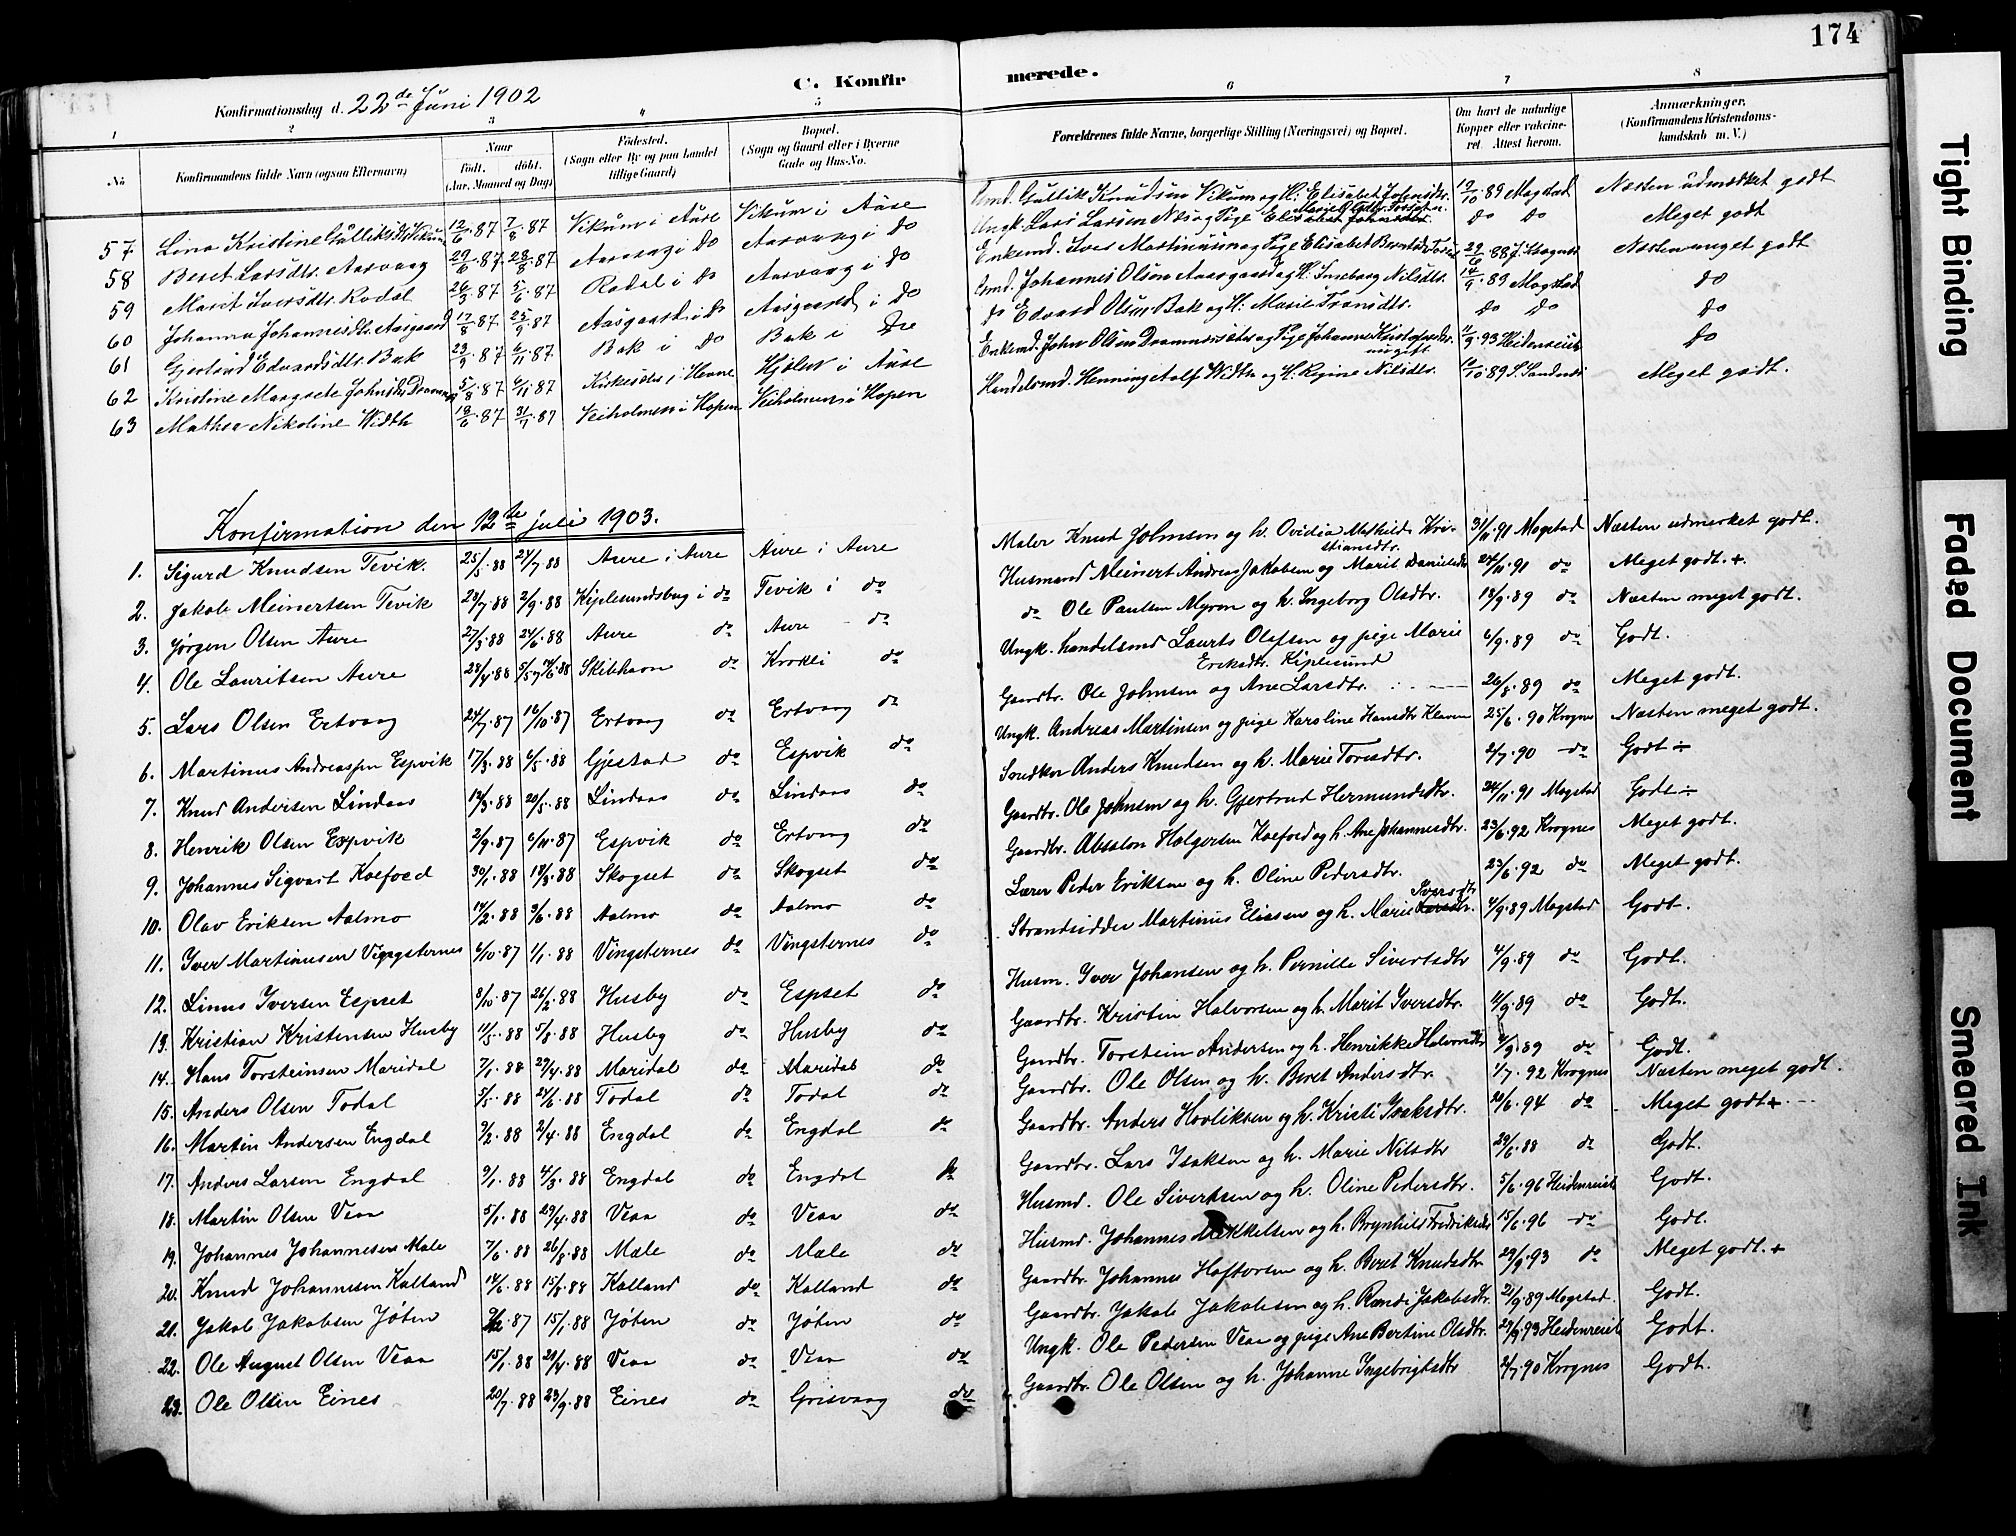 174
C. Konfirmerede.
Konfirmationsdag d. 22de Juni 1902
1 2 3 4 5 6 7 8
No Konfirmandens fulde Navn (ogsaa Efternavn) Naar født. døbt. (Aar, Maaned og Dag) Fødested. (Sogn eller By og paa Landet tillige Gaard) Bopæl. (Sogn og Gaard eller i Byerne Gade og Hus-No. Forældrenes fulde Navne, borgerlige Stilling (Næringsvei) og Bopæl. Om havt de naturlige Kopper eller vakcineret. Attest herom. Anmærkninger. (Konfirmandens Kristendomskundskab m. V.)
57 Lina Kristine Gulliksdtr Vikum 12/6 87 7/8 87 Vikum i Aure Vikum i Aure Gullik Knudsen Vikum og H. Elisabet Johnsdtr. 89 Magstad Næsten udmærket godt
58 Beret Larsdtr. Aarvaag 29/6 87 28/8 87 Aarvaag i do Aarvaag i do Ungk. Lars Larsen og Pige do do Meget godt
59 Maret Iversdtr. Rodal 26/3 87 5/6 87 Rodal i do Aarvaag i do Enkemd. Iver Martinussen og Pige Elisabet 29/6 88 Næsten meget godt
60 Johanna Johannesdtr. Aasgaard 17/8 87 25/9 87 Aasgaard i do Aasgaard i do Johannes Olsen Aasgaard og H. Ingeborg Nilsdtr. 14/9 89 Magstad do
61 Gjertrud Edvardsdtr. Bak 23/9 87 6/11 87 Bak i do Bak i do do Edvard Olsen Bak og H. Marit Fransdtr. do do do
62 Kristine Margrete Johnsdtr 5/8 87 6/11 87 i Hevne i Aure Enkemd. John Olsen og Pige Johanna Kristofersdtr. ugift 11/9 93 Heidenreich do
63 Mathea Nikoline Width 18/6 87 31/7 87 Veiholmen i Hopen Veiholmen i Hopen Handelsmd. Henning Adolf Width og H. Regine Nilsdtr. 16/10 89 Meget godt.
Konfirmation den 12te juli 1903.
1. Sigurd Knudsen Tevik. 25/5 88 24/7 88 Aure i Aure Aure i Aure Maler Knud Johnsen og h. Ovidia Mathilde Kristiansdtr. 3/11 91 Magstad Næsten udmerket godt.
2. Jakob Meinertsen Tevik 28/7 88 2/9 88 Kiplesundsbug i do Tevik i do Husmand Meinert Andreas Jakobsen og Marit Danielsdtr 24/11 91 do Meget godt. +
3. Jørgen Olsen Aure 27/3 88 24/6 88 Aure do Aure do do Ole Paulsen Myren og h. Ingeborg Olsdtr. 18/9 89 do Næsten meget godt.
4. Ole Lauritsen Aure 28/4 88 Skibhavn do Krokli do Ungk. handelsmd Laurits Olafsen og pige Marie Eriksdtr. Kiplesund 6/9 89 do Godt.
5. Lars Olsen Ertvaag 24/7 87 16/10 87 Ertvaag do Ertvaag do Gaardbr. Ole Johnsen og Ane Larsdtr. 26/8 89 do Meget godt.
6. Martinus Andreassen Espvik 17/3 88 6/5 88 Gjestad do Espvik do Ungk. Andreas Martinsen og pige Karoline Hansdtr 25/6 90 Krognes Næsten meget godt.
7. Knud Andersen Lindaas 12/3 88 20/5 88 Lindaas do Lindaas do Anders Knudsen og h. Marie Toresdtr. 2/7 90 do Godt ÷
8. Henrik Olsen Espvik 2/9 87 6/11 87 Espvik do Ertvaag do Gaardbr. Ole Johnsen og h. Gjertrud Hermundsdtr. 24/11 91 Magstad Godt ÷
9. Johannes Sigvart Koefoed 30/1 88 18/3 88 Skogset do Skogset do Gaardbr. Absalon Holgersen Koefoed og h. Ane Johannesdtr. 23/6 92 Krognes Meget godt.
10. Olav Eriksen Aalmo 14/2 88 3/6 88 Aalmo do Aalmo do Lærer Peder Eriksen og h. Oline Pedersdtr. 23/6 92 do Meget godt.
11. Iver Martinusen Vingsternes 6/10 87 1/1 88 Vingsternes do Vingsternes do Strandsidder Martinus Eliassen og h. Marie Iversdtr. 4/9 89 Magstad Godt.
12. Linus Iversen Espset 8/10 87 26/2 88 Husby do Espset do Husm. Iver Johansen og h. Pernille Sivertsdtr 4/9 89 do Godt.
13. Kristian Kristensen Husby 11/5 88 5/8 88 Husby do Husby do Gaardbr. Kristen Halvorsen og h. Marit Iversdtr. 11/9 89 do Godt.
14. Hans Torsteinsen Maridal 7/1 88 29/4 88 Maridal do Maridal do Gaardbr. Torstein Andersen og h. Henrikke Halvorsdtr 4/9 89 do Godt.
15. Anders Olsen Todal 5/5 88 24/6 88 Todal do Todal do Gaardbr. Ole Olsen og h. Beret Andersdtr. 1/7 92 Krognes Næsten meget godt.
16. Martin Andersen Engdal 9/2 88 2/4 88 Engdal do Engdal do Gaardbr. Anders Hovliksen og h. Kristi Isaksdtr. 20/6 94 do Meget godt +
17. Anders Larsen Engdal 9/1 88 4/3 88 Engdal do Engdal do Gaardbr. Lars Isaksen og h. Marie Nilsdtr 29/6 88 do Godt.
18. Martin Olsen Veaa 5/1 88 29/4 88 Veaa do Veaa do Husmd. Ole Sivertsen og h. Oline Pedersdtr. 5/6 96 Heidenreich Godt.
19. Johannes Johannesen Mæle 7/6 88 26/8 88 Mæle do Mæle do Husmd. Johannes Mikkelsen og h. Brynhild Fredriksdtr 15/6 96 do Godt.
20. Knud Johannesen Kalland 14/6 88 15/8 88 Kalland do Kalland do Gaardbr. Johannes Haftorsen og h. Beret Knudsdtr 29/9 93 do Meget godt. +
21. Jakob Jakobsen Jøten 87 15/1 88 Jøten do Jøten do Gaardbr. Jakob Jakobsen og h. Randi Jakobsdtr. 21/9 89 Magstad. Godt.
22. Ole August Olsen Veaa 15/1 88 21/4 88 Veaa do Veaa do Ungk. Ole Pedersen Veaa og pige Ane Bertine Olsdtr. 29/9 93 Heidenreich Godt.
23. Ole Olsen Eines 20/7 88 23/9 88 Eines do Grisvaag do Gaardbr. Ole Olsen og h. Johanne Ingebrigtsdtr 2/7 90 Krognes Godt.
Tight Binding
Faded Document
Smeared Ink